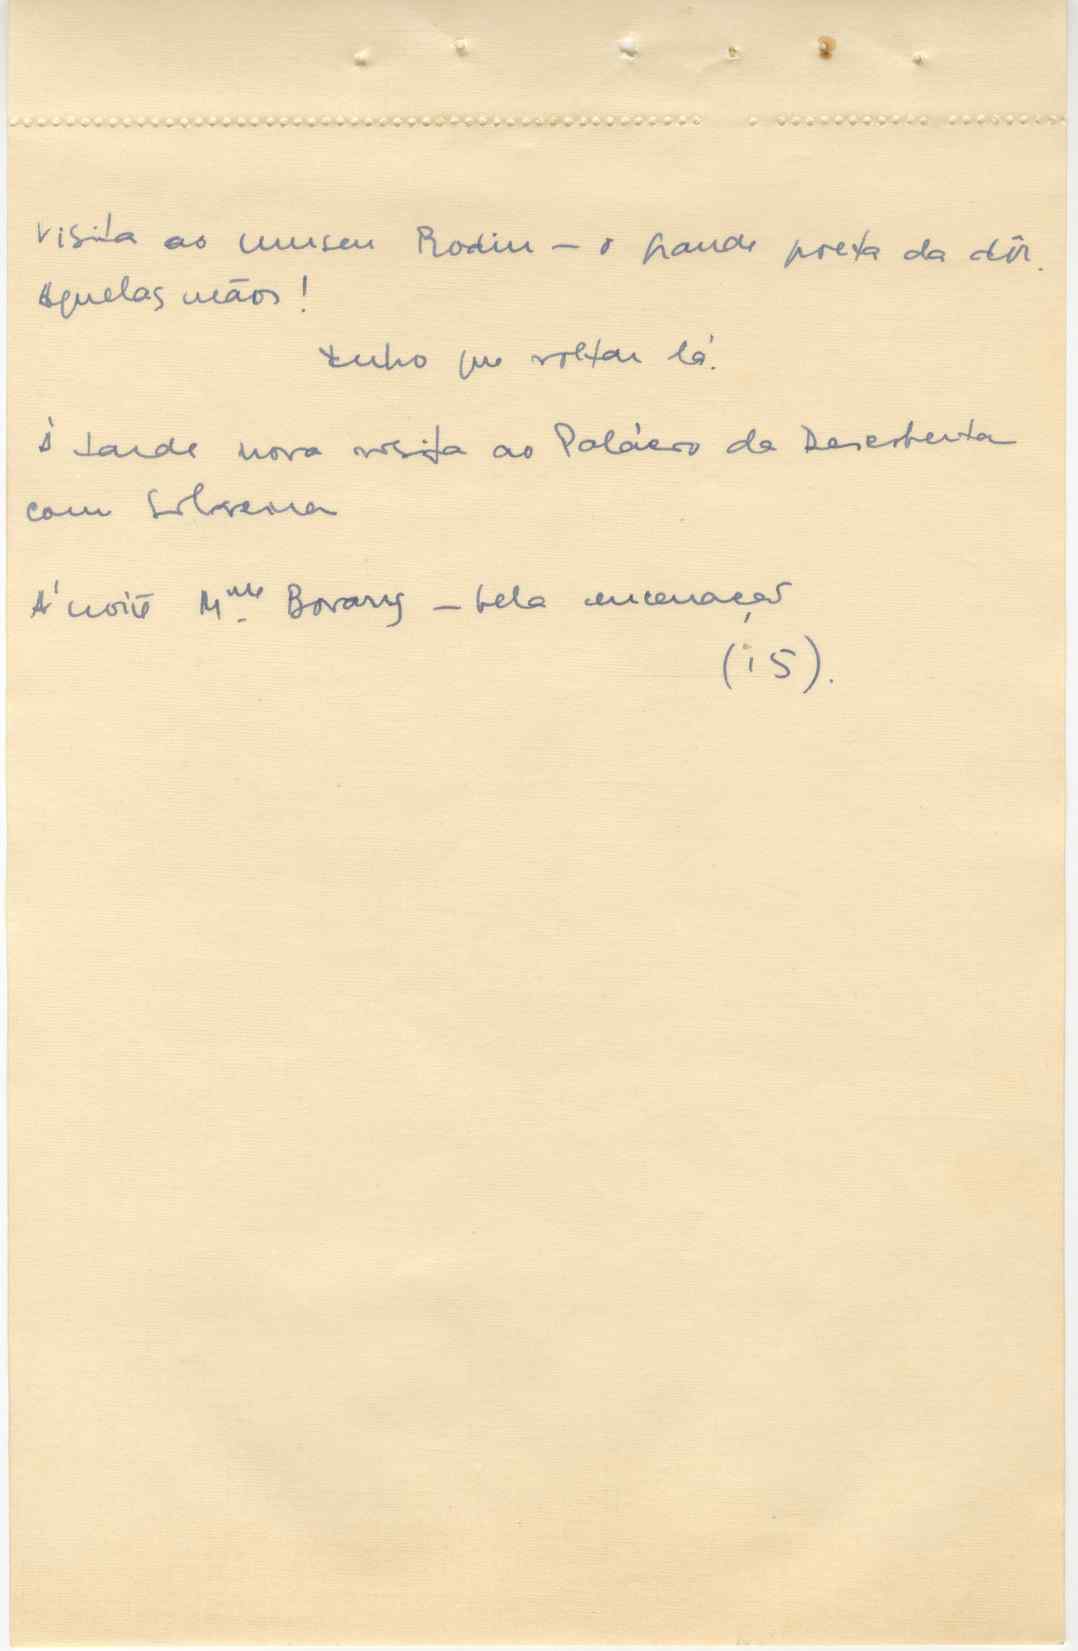 Visita ao museu Rodin – o grande poeta da dôr.
Aquelas mãos!
tenho que voltar lá.
À tarde nova visita ao Palácio da Descoberta
com
À noite Mme Bovary – bela encenação
(15).